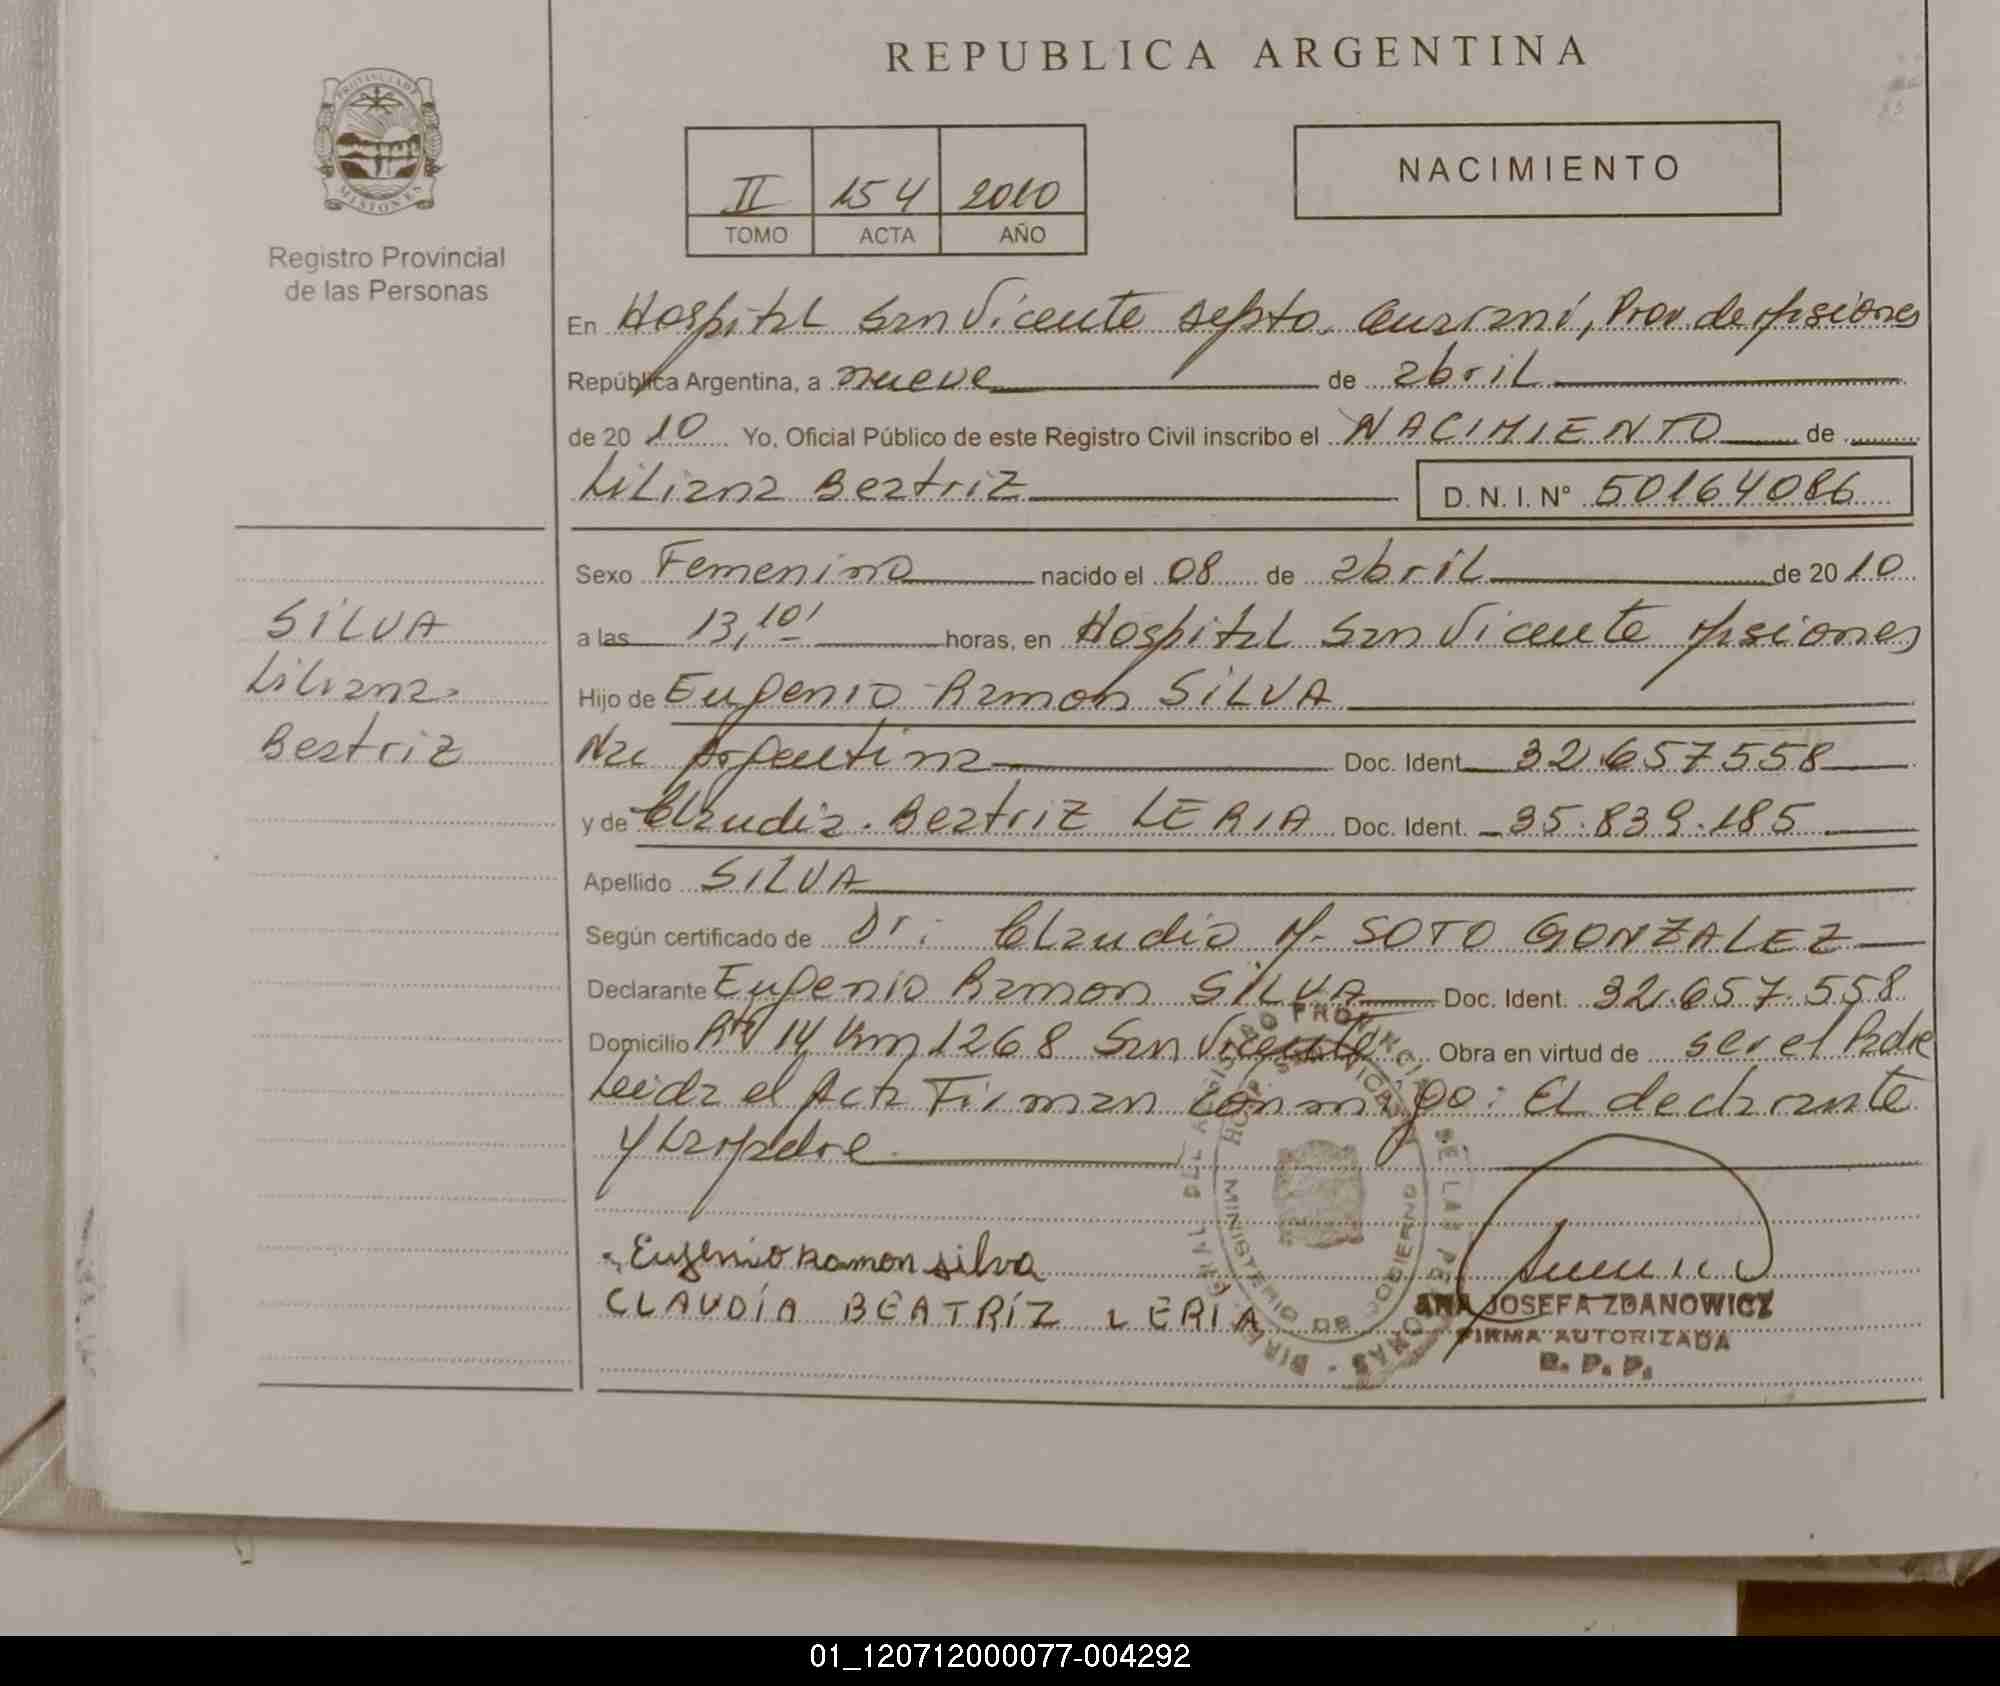 REPUBLICA ARGENTINA
PROVINCIA DE
MISIONES
Registro Provincial
de las Personas
II 154 2010
TOMO ACTA AÑO
NACIMIENTO
En Hospital San Vicente depto. Guaraní, Prov. de Misiones
República Argentina, a nueve de abril
de 2010 Yo, Oficial Público de este Registro Civil inscribo el NACIMIENTO de
Liliana Beatriz D.N.I. Nº 50164086
Sexo Femenino nacido el 08 de abril de 2010
a las 13,10' horas, en Hospital San Vicente Misiones
Hijo de Eugenio Ramon SILVA
Nac Argentina Doc. Ident. 32.657558
y de Claudia Beatriz LERIA Doc. Ident. 35.839.185
Apellido SILVA
Según certificado de Dr: Claudio M. SOTO GONZALEZ
Declarante Eugenio Ramon SILVA Doc. Ident. 32.657.558
Domicilio Rta 14 Km 1268 San Vicente Obra en virtud de ser el Padre
Leida el Acta Firman conmigo: El declarante
y La Madre
SILVA
Liliana
Beatriz
Eugenio Ramon Silva
CLAUDÍA BEATRÍZ LERIA
MINISTERIO DE GOBIERNO
ANA JOSEFA ZDANOWICZ
FIRMA AUTORIZADA
R. P. P.
01_120712000077-004292